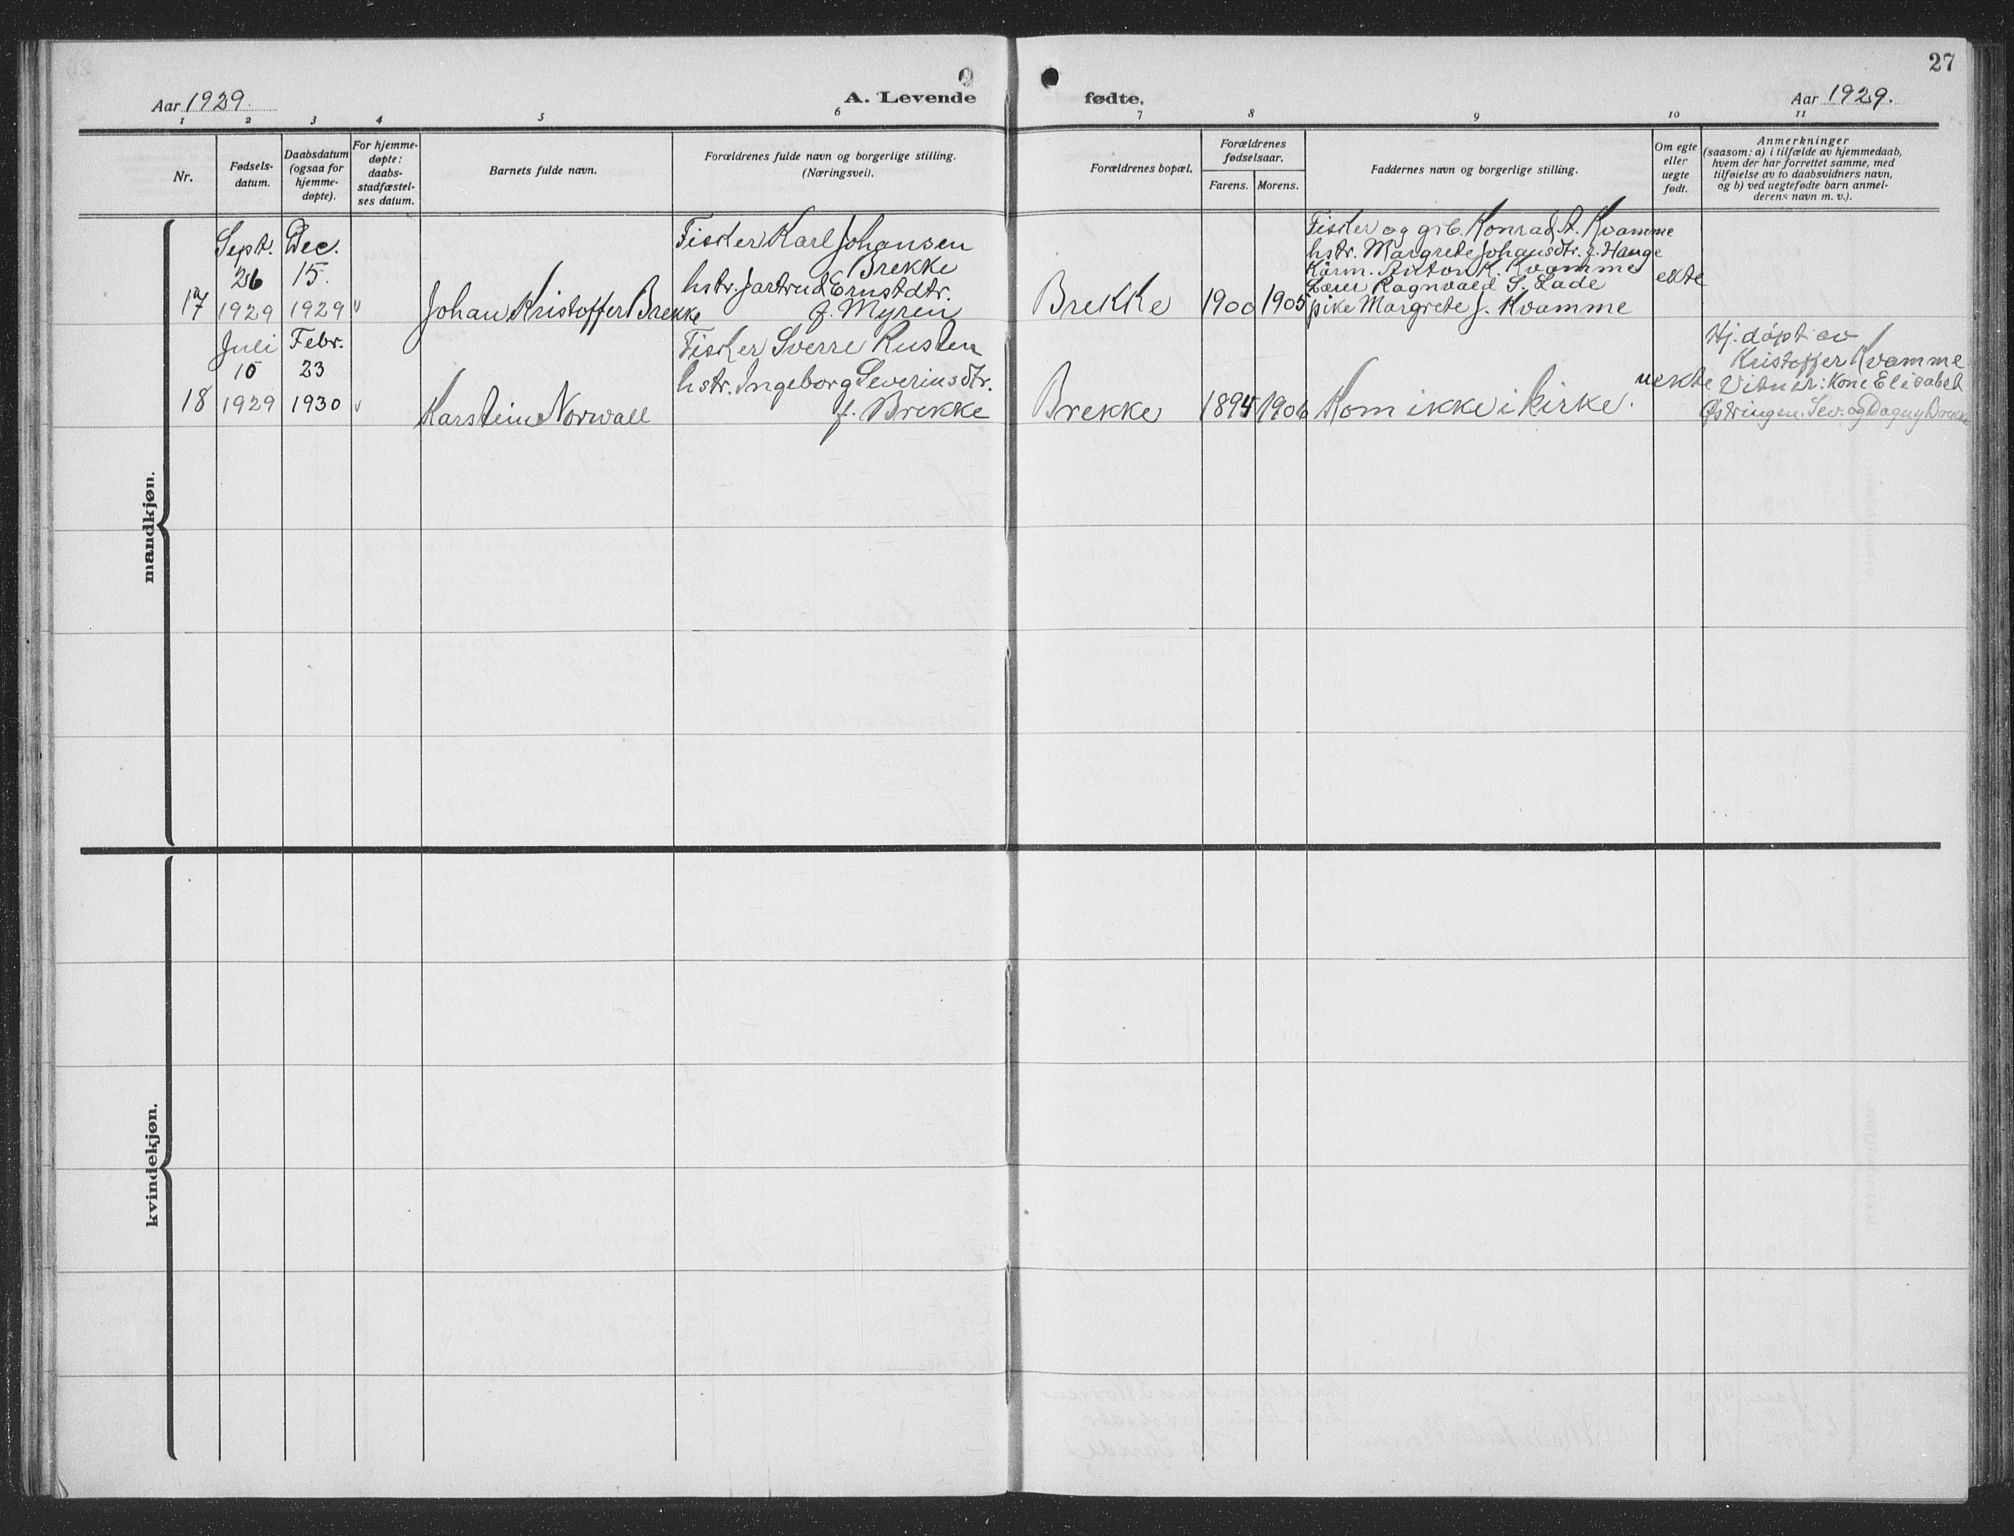 27
Aar 1929.
A. Levende
fødte.
Aar 1929.
1 2 3 4 5 6 7 8 9 10 11
Nr.
Fødsels-
datum.
Daabsdatum
(ogsaa for
hjemme-
døpte).
For hjemme-
døpte:
daabs-
stadfæstel-
ses datum.
Barnets fulde navn.
Forældrenes fulde navn og borgerlige stilling.
(Næringsvei).
Forældrenes bopæl.
Forældrenes
fødselsaar.
Farens. Morens.
Faddernes navn og borgerlige stilling.
Om egte
eller
uegte
født.
Anmerkninger
(saasom: a) i tilfælde av hjemmedaab,
hvem der har forrettet samme, med
tilføielse av to daabsvidners navn,
og b) ved uegtefødte barn anmel-
derens navn m. v.).
mandkjøn.
17
Sept.
26
1929
Dec.
15.
1929
Johan Kristoffer Brekke
Fisker Karl Johansen
Brekke
hstr. Jartrud Ernstdtr.
f. Myren
Brekke
1900
1905
Fisker og grb. Konrad A. Kvamme
hstr. Margrete Johansdtr. f. Hauge
Kårm. Anton K. Kvamme
Ragnvald S. Lade
pike Margrete J. Kvamme
ekte
18
Juli
10
1929
Febr.
23
1930
Karstein Norvall
Fisker Sverre Rusten
hstr. Ingeborg Severinsdtr.
f. Brekke
Brekke
1894
1906
Kom ikke i kirke.
uekte
Hj. døpt av
Kristoffer Kvamme
Vitner: Kone Elisabet
Østringen. Sev. og Dagny Brekke
kvindekjøn.